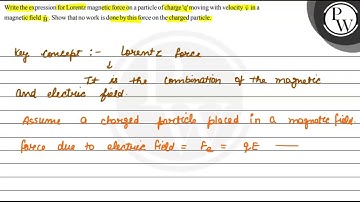 Write the expression for Lorentz magnetic force on a particle of charge 'q' moving with velocity v⃗ in a
magnetic field B⃗. Show that no work is done by this force on the charged particle.
PW
Key concept :- Lorentz force
↓
It is the combination of the magnetic
and electric field.
Assume a charged particle placed in a magnetic field.
force due to electric field = Fe = qE —